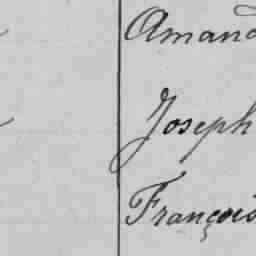 Amand
Joseph
François